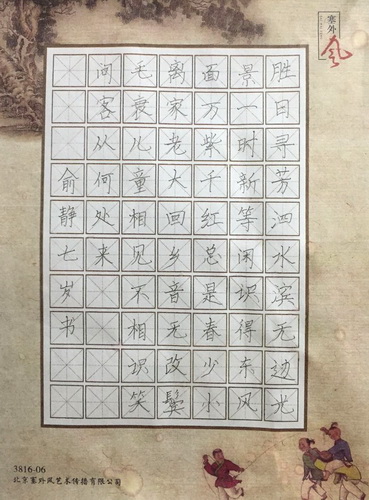 塞外
风
胜日寻芳泗水滨无边光
景一时新等闲识得东风
面万紫千红总是春少小
离家老大回乡音无改鬓
毛衰儿童相见不相识笑
问客从何处来
俞静七岁书
3816-06
北京塞外风艺术传播有限公司